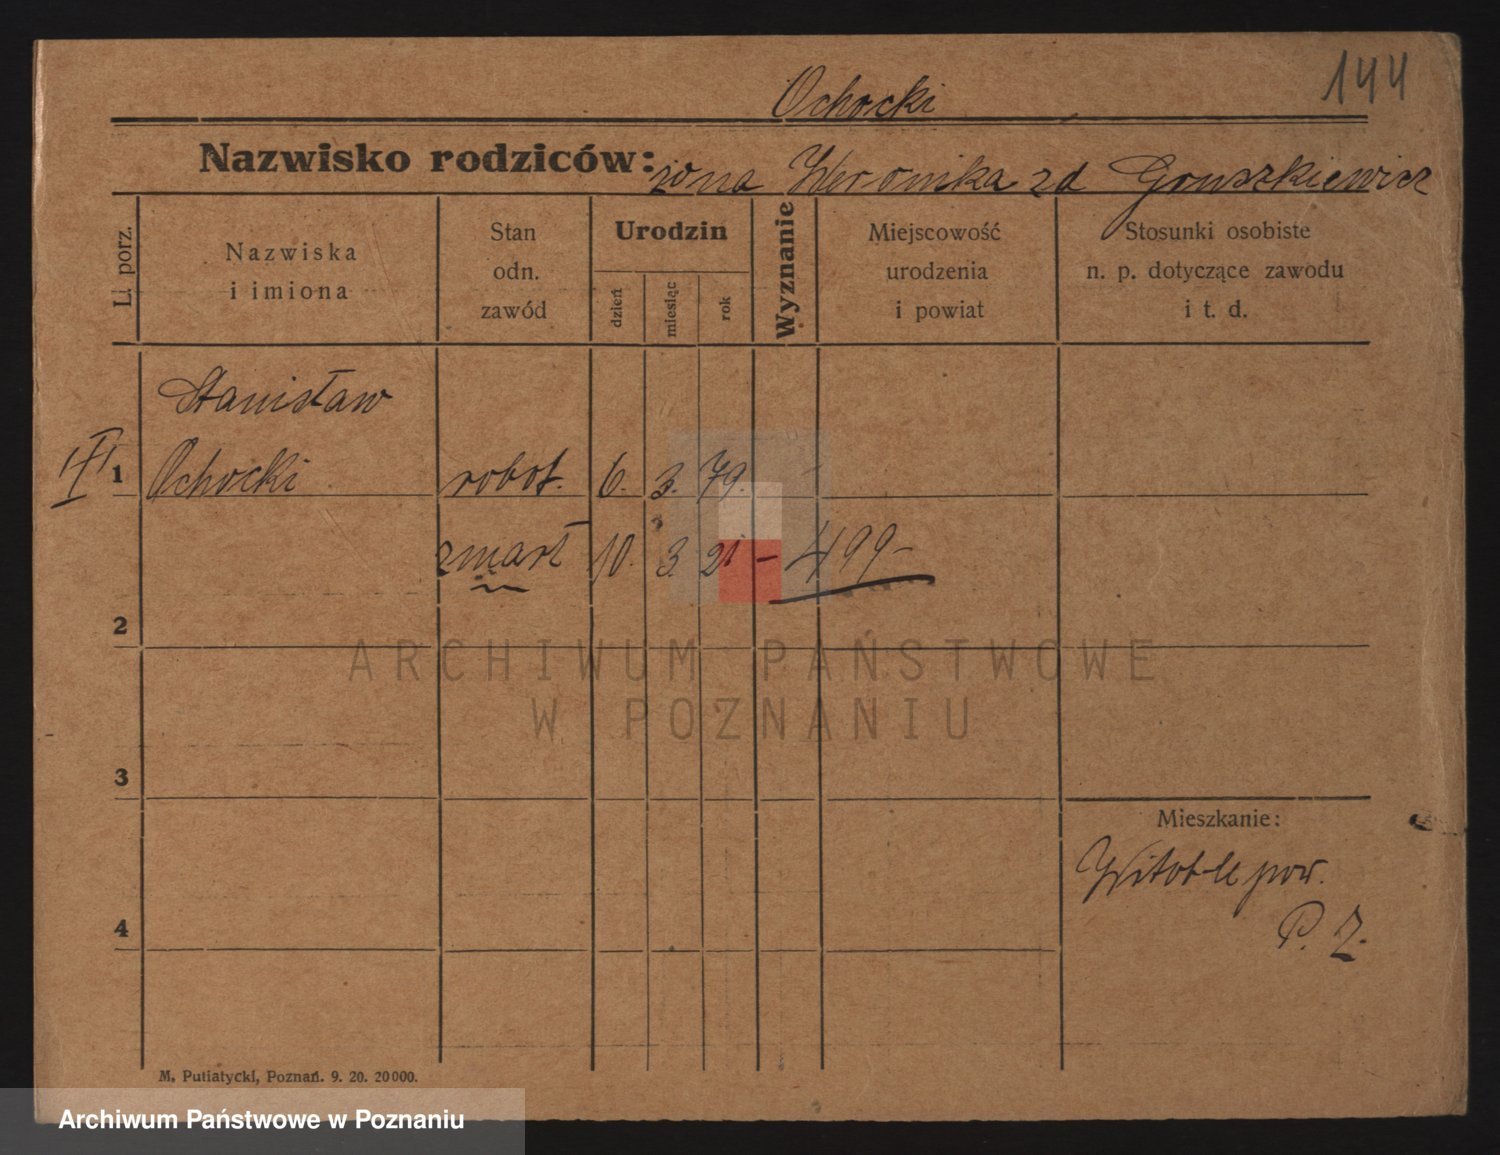 144
Ochocki
Nazwisko rodziców: żona Weronika zd Gruszkiewicz
L. porz.
Nazwiska
i imiona
Stan
odn.
zawód
Urodzin
dzień
miesiąc
rok
Wyznanie
Miejscowość
urodzenia
i powiat
Stosunki osobiste
n. p. dotyczące zawodu
i t. d.
Stanisław
1 Ochocki robot. 6. 3. 79.
zmarł 10. 3. 21 – 499 –
2
ARCHIWUM PAŃSTWOWE
W POZNANIU
3
Mieszkanie:
Witoble pow.
P. Z.
4
M. Putiatycki, Poznań. 9. 20. 20000.
Archiwum Państwowe w Poznaniu